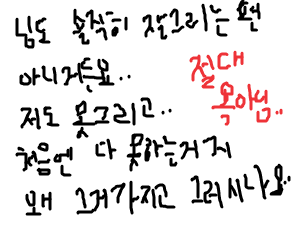 님도 솔직히 잘그리는편
아니거든요..
절대
저도 못그리고..
욕아님..
처음엔 다 못하는거지
왜 그거가지고 그러시나요..